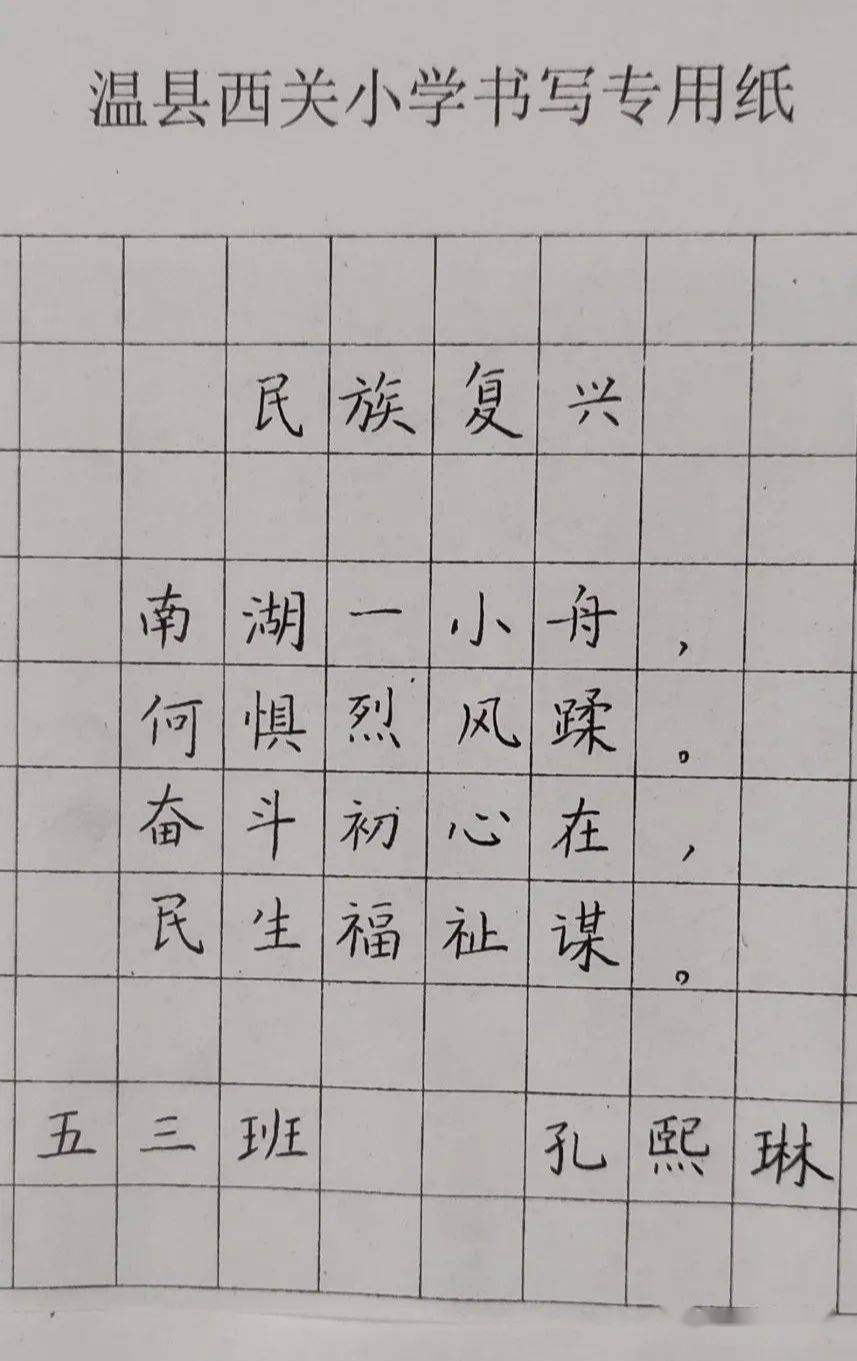 温县西关小学书写专用纸
民族复兴
南湖一小舟，
何惧烈风蹂。
奋斗初心在，
民生福祉谋。
五三班 孔熙琳